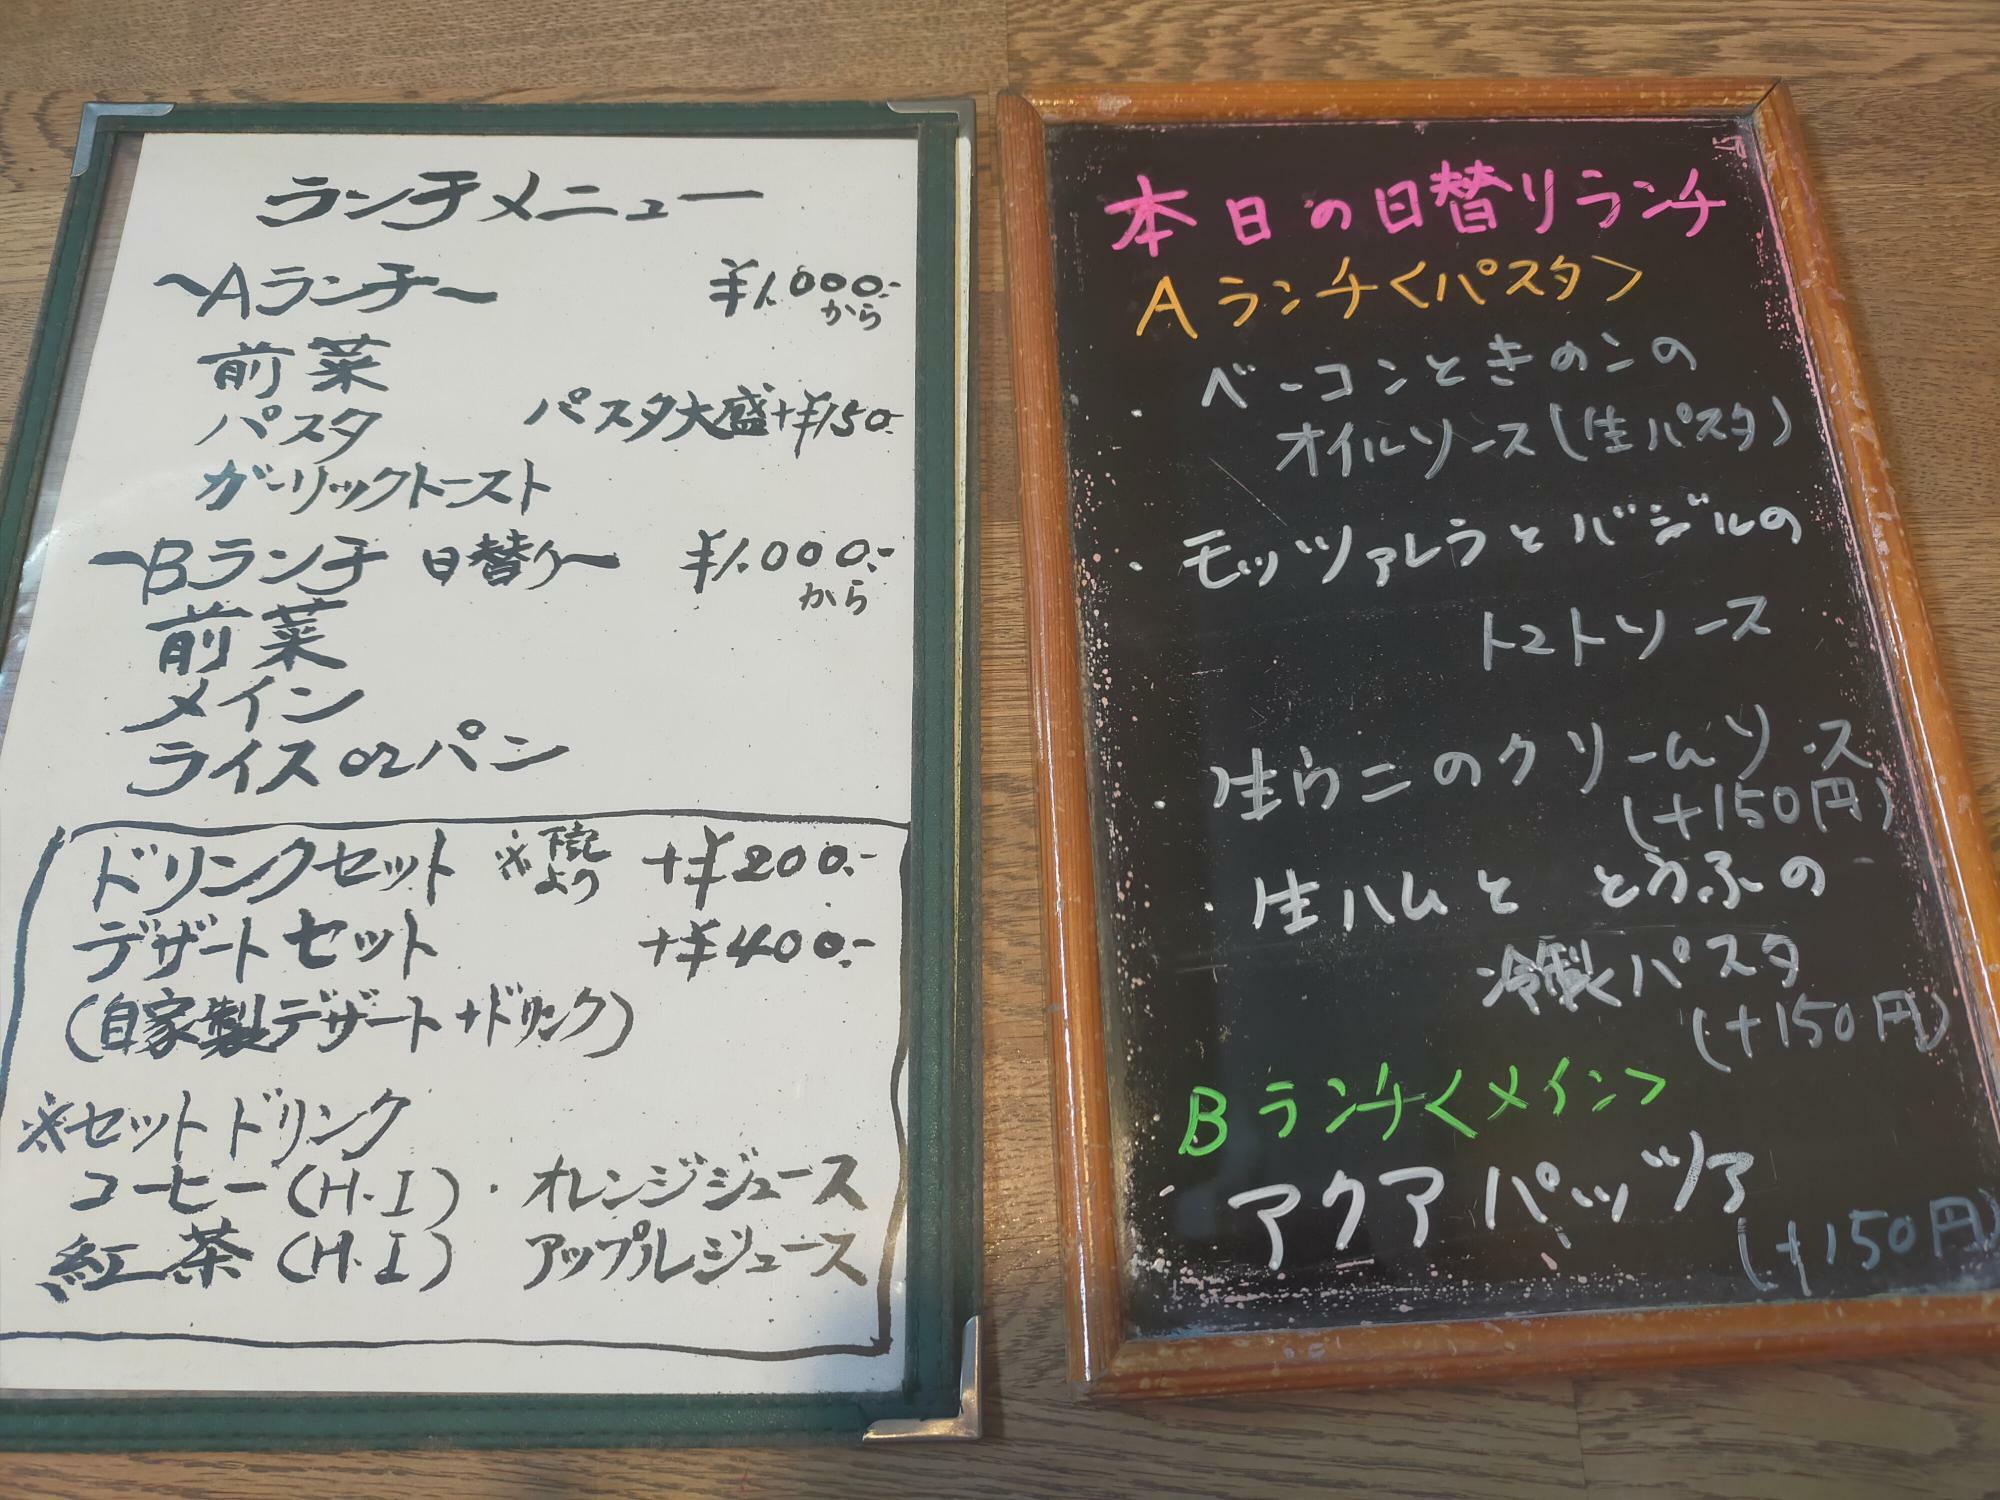 ランチメニュー
〜Aランチ〜 ¥1,000.-から
前菜
パスタ パスタ大盛+¥150.-
ガーリックトースト
〜Bランチ 日替り〜 ¥1,000.-から
前菜
メイン
ライス or パン
ドリンクセット ※下記より +¥200.-
デザートセット +¥400.-
(自家製デザート+ドリンク)
※セットドリンク
コーヒー(H・I)・オレンジジュース
紅茶(H・I) アップルジュース
本日の日替りランチ
Aランチ<パスタ>
・ベーコンときのこの
オイルソース(生パスタ)
・モッツァレラとバジルの
トマトソース
・生ウニのクリームソース
(+150円)
・生ハムと とうふの
冷製パスタ
(+150円)
Bランチ<メイン>
・アクアパッツァ
(+150円)